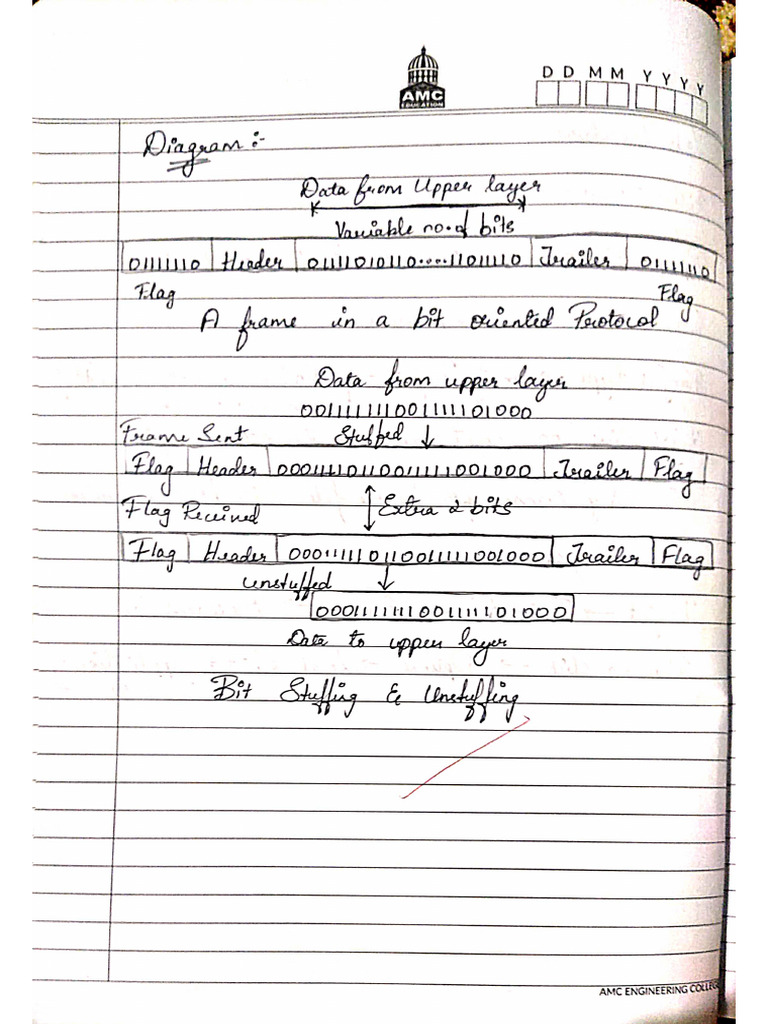 AMC
EDUCATION
D D M M Y Y Y Y
Diagram :-
Data from Upper layer
Variable no. of bits
01111110 Header 01111010110....1101110 Trailer 01111110
Flag Flag
A frame in a bit oriented Protocol
Data from upper layer
001111111100111110 1000
Frame Sent Stuffed ↓
Flag Header 00011110110011111001000 Trailer Flag
Flag Received Extra 2 bits
Flag Header 00011111011001111100 1000 Trailer Flag
Unstuffed
000111111110011111 01000
Data to upper layer
Bit Stuffing & Unstuffing
AMC ENGINEERING COLLEG